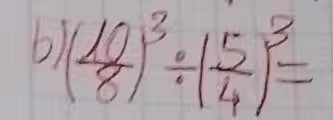 b) (10/8)³ ÷ (5/4)³ =